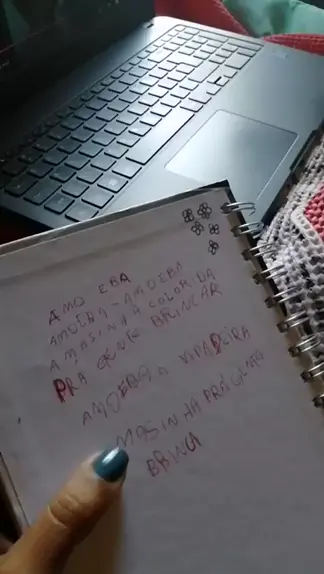 AMO EBA
AMOEBA-AMOEBA
A MASINHA COLORIDA
PRA GENTE BRINCAR
AMOEBA A VIDADEIRA
MASINHA PRA GENTE
BRINCA